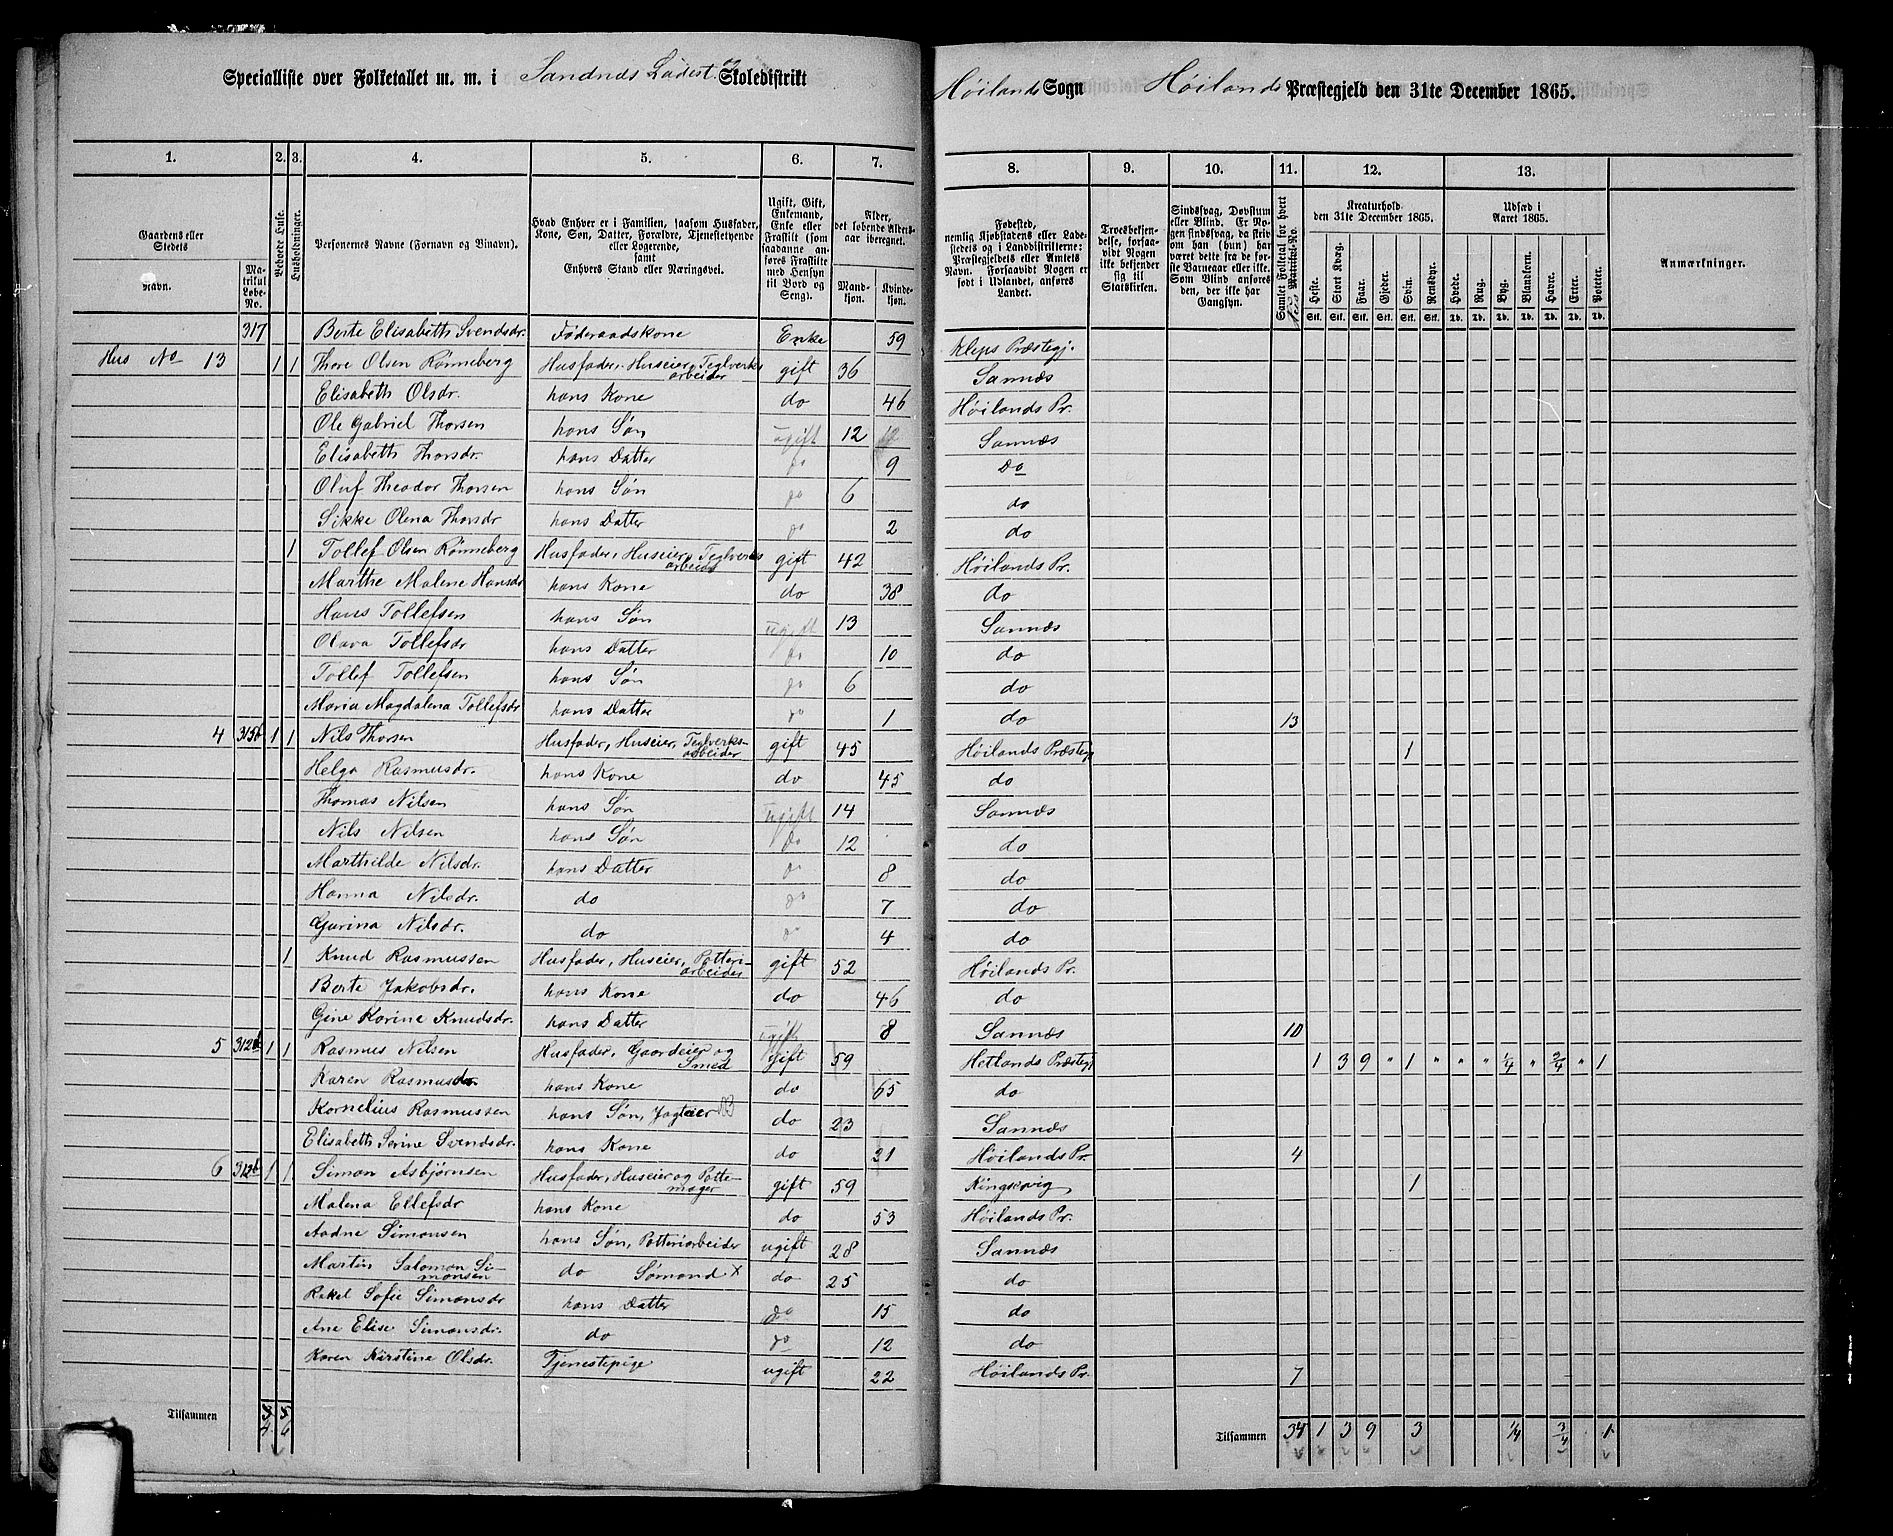 Specialliste over Folketallet m. m. i Sandnæs Ladest. Skoledistrikt Høilands Sogn Høilands Præstegjeld den 31te December 1865.
1. 2. 3. 4. 5. 6. 7. 8. 9. 10. 11. 12. 13.
Gaardens eller Stedets
Navn. Matrikul Løbe-No.
Beboede Huse.
Husholdninger.
Personernes Navne (Fornavn og Tilnavn).
Hvad Enhver er i Familien, saasom Husfader, Kone, Søn, Datter, Forældre, Tjenestetyende eller Logerende, samt Enhvers Stand eller Næringsvei.
Ugift, Gift, Enkemand, Enke eller Fraskilt (som saadanne anføres Fraskilte med Hensyn til Bord og Seng).
Alder, det løbende Aldersaar iberegnet.
Mandkjøn. Kvindekjøn.
Fødested, nemlig Kjøbstadens eller Ladestedets og i Landdistrikterne: Præstegjeldets eller Amtets Navn. Forsaavidt Nogen er født i Udlandet, anføres Landet.
Troesbekjendelse, forsaavidt Nogen ikke bekjender sig til Statskirken.
Sindssvag, Døvstum eller Blind. Er Nogen sindssvag, da skrives om han (hun) har været dette fra de første Barneaar eller ikke. Som Blind anføres den, der ikke har Gangsyn.
Samlet Folketal for hvert Matrikul-No.
Kreaturhold den 31te December 1865.
Heste. Stort Kvæg. Faar. Gjeder. Svin. Rensdyr.
Udsæd i Aaret 1865.
Hvede. Rug. Byg. Blandkorn. Havre. Erter. Poteter.
Anmærkninger.
317 Berte Elisabeth Svendsdr. Føderaadskone Enke 59 Kleps Præstegj.
Hus No 13 1 1 Thore Olsen Rønneberg Husfader, Huseier, Teglverksarbeider gift 36 Sannæs
Elisabeth Olsdr. hans Kone do 46 Høilands Pr.
Ole Gabriel Thorsen hans Søn ugift 12 Sannæs
Elisabeth Thorsdr. hans Datter do 9 Do
Oluf Theodor Thorsen hans Søn do 6 do
Sikke Olena Thorsdr hans Datter do 2 do
1 Tollef Olsen Rønneberg Husfader, Huseier, Teglverksarbeider gift 42 Høilands Pr.
Marthe Malene Hansdr hans Kone do 38 do
Hans Tollefsen hans Søn ugift 13 Sannæs
Olava Tollefsdr hans Datter do 10 do
Tollef Tollefsen hans Søn do 6 do
Maria Magdalena Tollefsdr hans Datter do 1 do 13
4 315b 1 1 Nils Thorsen Husfader, Huseier, Teglverksarbeider gift 45 Høilands Præstegj 1
Helga Rasmusdr. hans Kone do 45 do
Thomas Nilsen hans Søn ugift 14 Sannæs
Nils Nilsen hans Søn do 12 do
Marthilde Nilsdr. hans Datter do 8 do
Hanna Nilsdr. do do 7 do
Gurina Nilsdr. do do 4 do
1 Knud Rasmussen Husfader, Huseier, Potteriarbeider gift 52 Høilands Pr.
Berte Jakobsdr. hans Kone do 46 do
Gine Karine Knudsdr. hans Datter ugift 8 Sannæs 10
5 312b 1 1 Rasmus Nilsen Husfader, Gaardeier og Smed gift 59 Hetlands Præstegj 1 3 9 " 1 " " " 1/4 " 3/4 " 1
Karen Rasmusdr. hans Kone do 65 do
Kornelius Rasmussen hans Søn, Jagteier do 23 Sannæs
Elisabeth Serine Svendsdr. hans Kone do 21 Høilands Pr. 4
6 312b 1 1 Simon Asbjørnsen Husfader, Huseier og Pottemager gift 59 1
Malena Ellefsdr hans Kone do 53 Høilands Pr.
Aadne Simonsen hans Søn, Potteriarbeider ugift 28 Sannæs
Martin Salomon Simonsen do Sømand x do 25 do
Rakel Sofie Simonsdr hans Datter do 15 do
Ane Elise Simonsdr. do do 12 do
Karen Kirstine Olsdr. Tjenestepige ugift 22 Høilands Pr. 7
Tilsammen Tilsammen 34 1 3 9 3 1/4 3/4 1